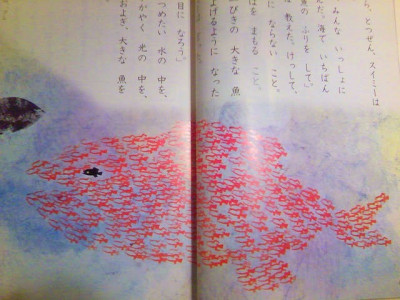 と、とつぜん、スイミーは
みんな いっしょに
んだ。海で いちばん
魚の ふりを して。」
教えた。けっして、
に ならない こと。
ばを まもる こと。
びきの 大きな 魚
よげるように なった
目に なろう。」
つめたい 水の 中を、
かがやく 光の 中を、
およぎ、大きな 魚を